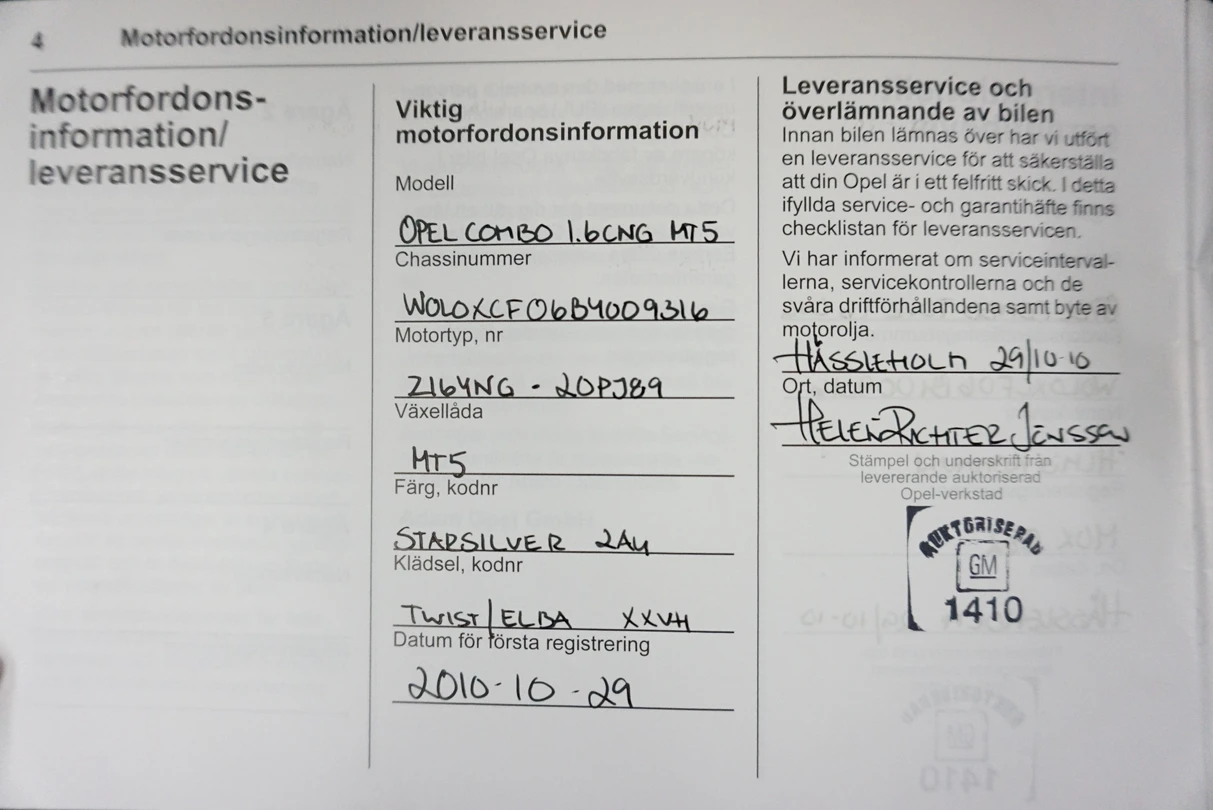 4 Motorfordonsinformation/leveransservice
Motorfordons-
information/
leveransservice
Viktig
motorfordonsinformation
Modell
OPEL COMBO 1.6CNG MT5
Chassinummer
W0L0XCF06B4009316
Motortyp, nr
Z16YNG - 20PJ89
Växellåda
MT5
Färg, kodnr
STARSILVER 2AU
Klädsel, kodnr
TWIST/ELBA XXVH
Datum för första registrering
2010-10-29
Leveransservice och
överlämnande av bilen
Innan bilen lämnas över har vi utfört
en leveransservice för att säkerställa
att din Opel är i ett felfritt skick. I detta
ifyllda service- och garantihäfte finns
checklistan för leveransservicen.
Vi har informerat om serviceinterval-
lerna, servicekontrollerna och de
svåra driftförhållandena samt byte av
motorolja.
HÄSSLEHOLM 29/10-10
Ort, datum
HELEN RICHTER JÖNSSON
Stämpel och underskrift från
levererande auktoriserad
Opel-verkstad
AUKTORISERAD
GM
1410